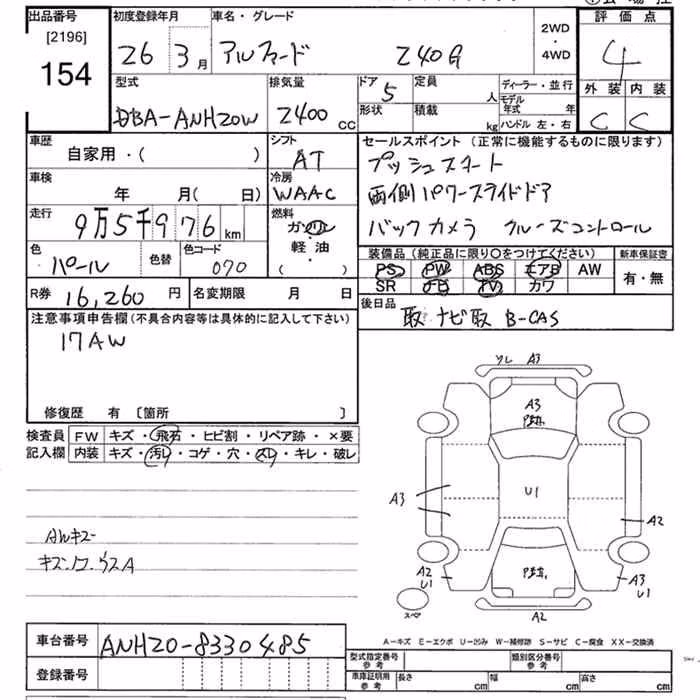 出品番号 初度登録年月 車名・グレード 評価点
[2196] 154 26 3月 アルファード Z40G 2WD・4WD 4
型式 排気量 ドア 定員 ディーラー・並行 外装 内装
DBA-ANH20W 2400cc 5 人 モデル年式 年 C C
形状 積載 kg ハンドル 左・右
車歴 シフト セールスポイント (正常に機能するものに限ります)
自家用・( ) AT プッシュスタート
車検 冷房 両側パワースライドドア
年 月( 日) WAAC
走行 燃料 バックカメラ クルーズコントロール
9万5千976km ガソリン・軽・油( )
色 色替 色コード 装備品(純正品に限り○をつけてください) 新車保証書
パール 070 PS PW ABS エアB AW 有・無
SR ナビ TV カワ
R券 16,260円 名変期限 月 日 後日品
取 ナビ取 B-CAS
注意事項申告欄(不具合内容等は具体的に記入して下さい)
17AW
修復歴 有 〔箇所 〕
検査員 FW キズ・飛石・ヒビ割・リペア跡・×要
記入欄 内装 キズ・汚レ・コゲ・穴・スレ・キレ・破レ
キズ・ノコ・ウスA
ソレ A3
A3
U1
A3
A2
A2 U1
A3 U1
スペア
A2
A-キズ E-エクボ U-凹み W-補修跡 S-サビ C-腐食 XX-交換済
車台番号 ANH20-8330485
型式指定番号 参考 類別区分番号 参考
登録番号 車庫証明用 参考 長さ cm 幅 cm 高さ cm